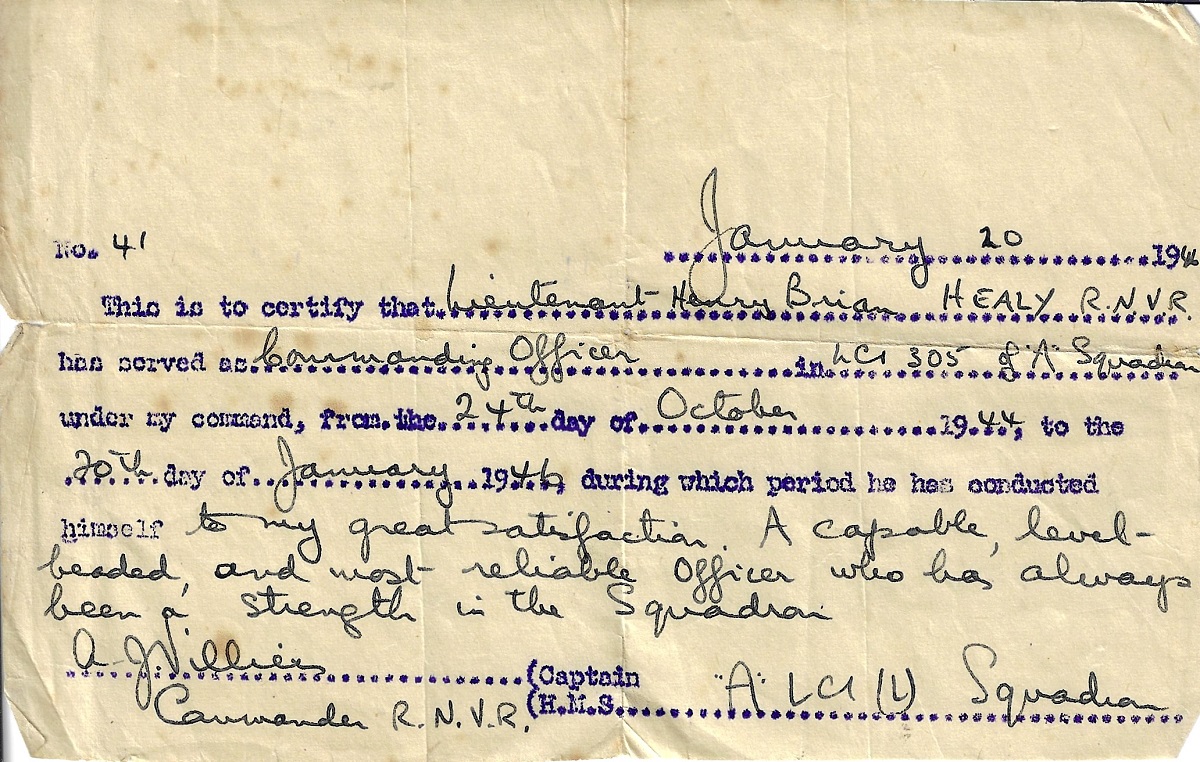 No. 41
January 20 1946
This is to certify that Lieutenant Henry Brian HEALY R.N.V.R.
has served as Commanding Officer in LCI 305 of "A" Squadron
under my command, from the 24th day of October 1944, to the
20th day of January 1946, during which period he has conducted
himself to my great satisfaction. A capable, level-
headed, and most reliable Officer who has always
been a strength in the Squadron
A J Villiers (Captain
Commander R.N.V.R. (H.M.S. "A" LCI (L) Squadron